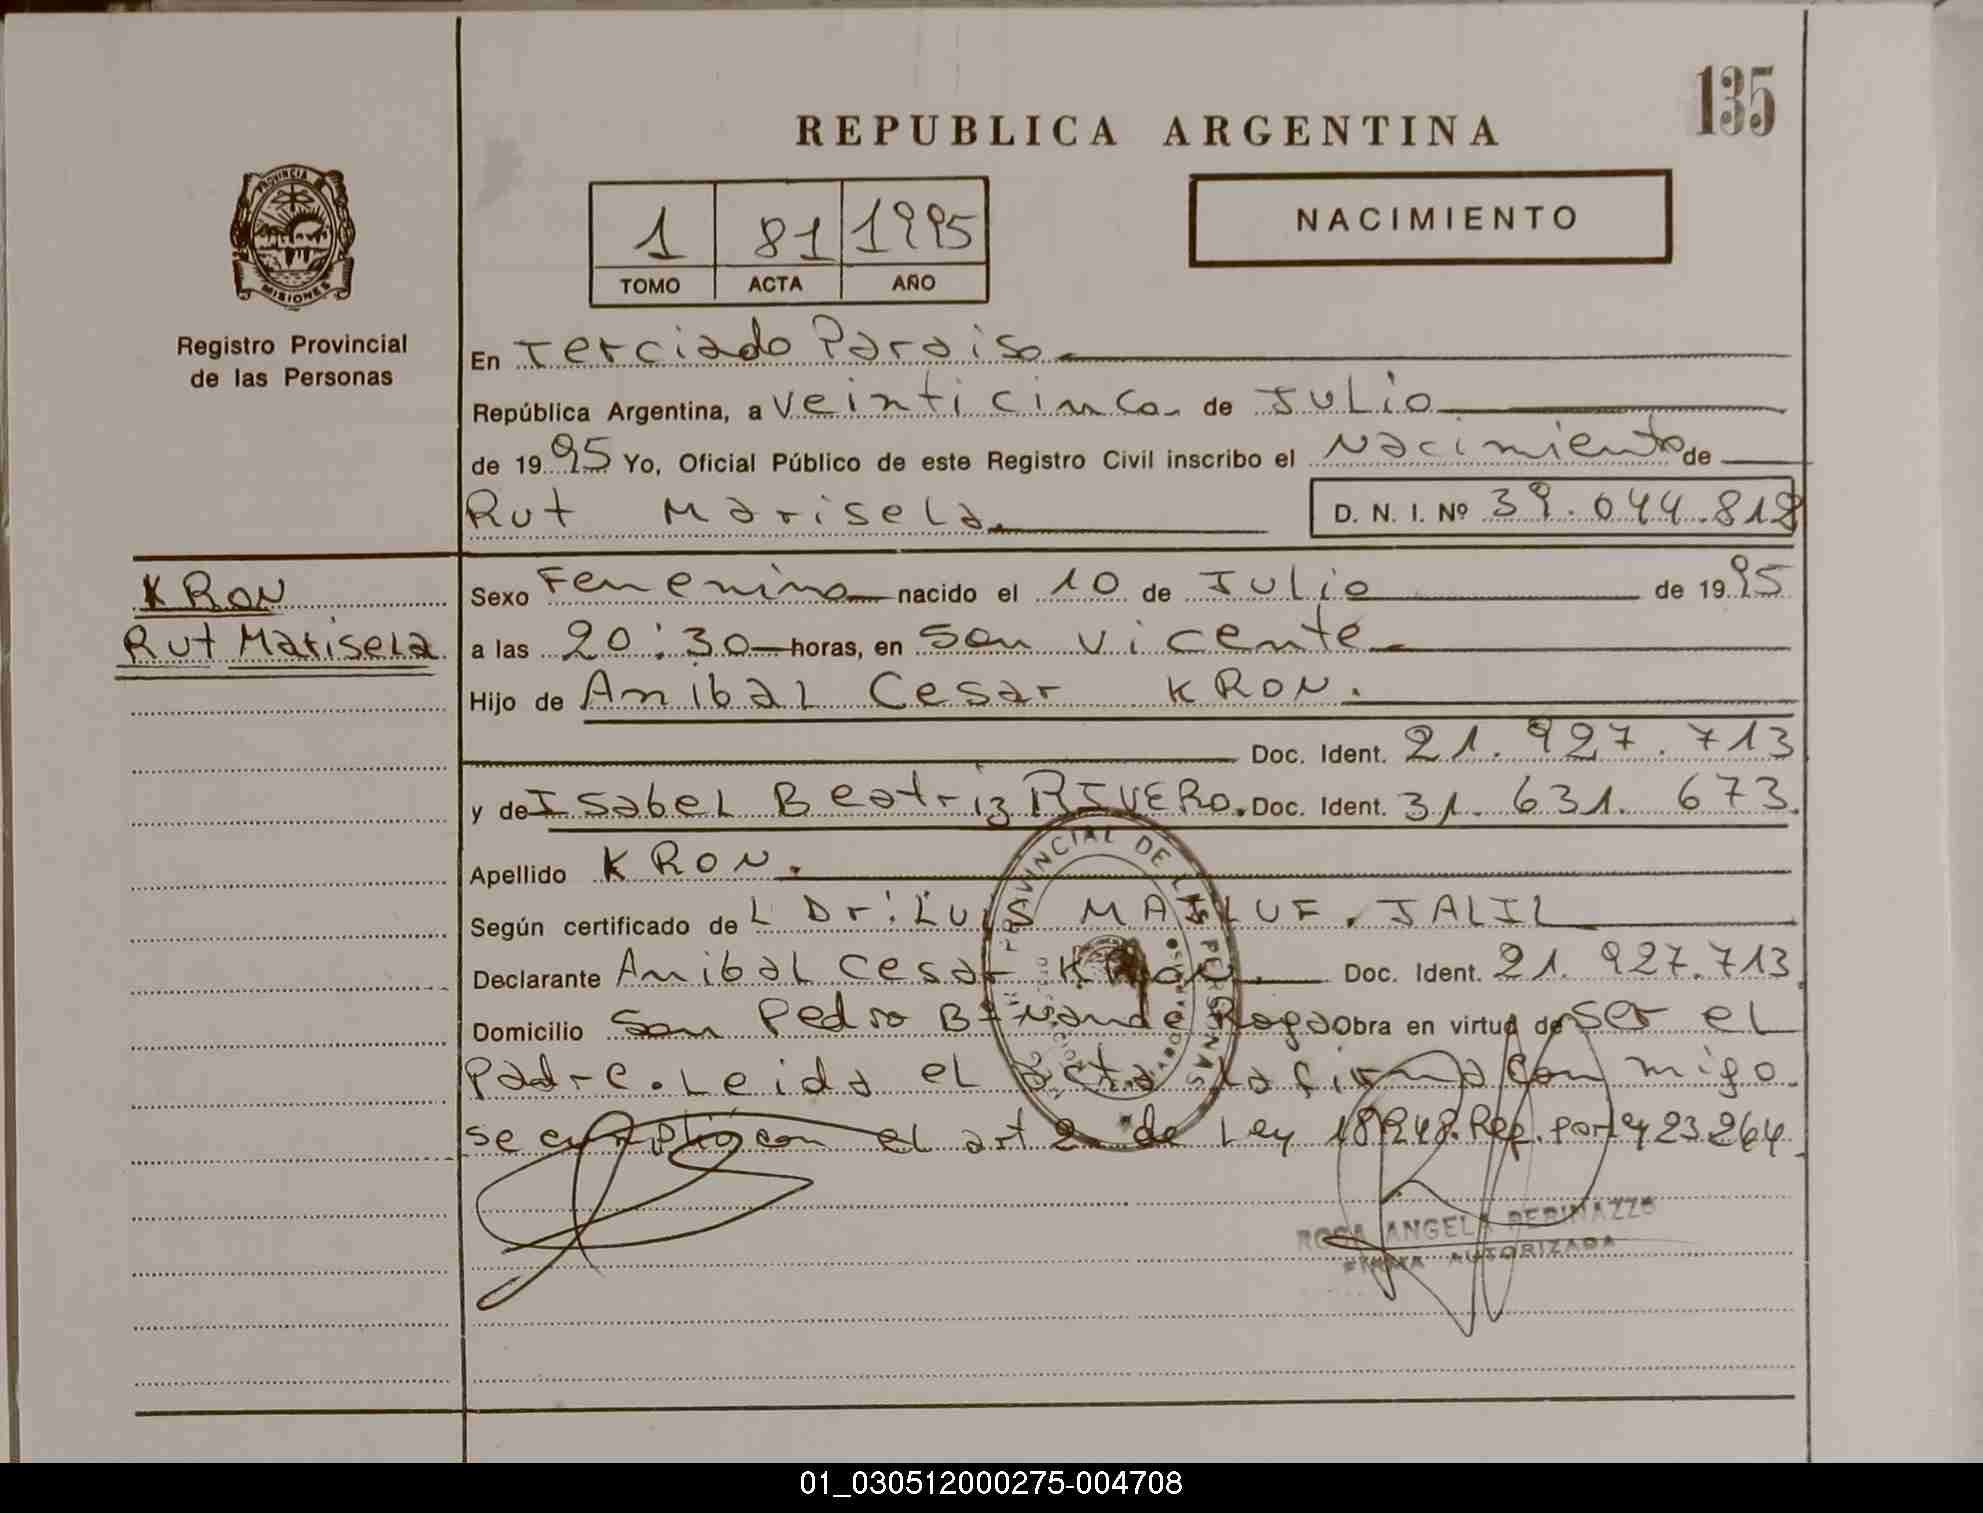 135
REPUBLICA ARGENTINA
NACIMIENTO
1 81 1995
TOMO ACTA AÑO
PROVINCIA DE
MISIONES
Registro Provincial
de las Personas
En Terciado Paraiso
República Argentina, a veinticinco de Julio
de 1995 Yo, Oficial Público de este Registro Civil inscribo el Nacimiento de
Rut Marisela D. N. I. Nº 39.044.818
KRON
Rut Marisela
Sexo Femenino nacido el 10 de Julio de 1995
a las 20:30 horas, en San Vicente
Hijo de Anibal Cesar KRON.
Doc. Ident. 21.927.713
y de Isabel Beatriz RIVERO. Doc. Ident. 31.631.673.
Apellido KRON.
Según certificado de L Dr: LUIS MAJLUF. JALIL
Declarante Anibal Cesar KRON. Doc. Ident. 21.927.713
Domicilio San Pedro Obra en virtud de ser el
Padre. Leida el acta la firma con migo.
se cumplió con el art 2 de Ley 18248. Rep. por 423264.
PROVINCIAL DE LAS PERSONAS
ROSA ANGELA
FIRMA AUTORIZADA
01_030512000275-004708